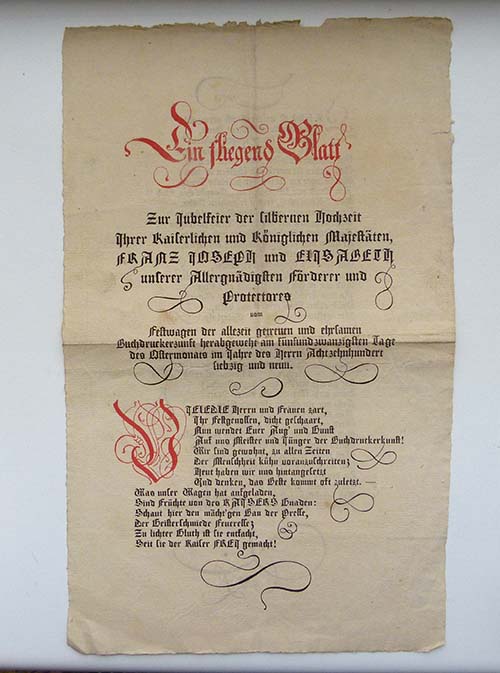 Ein fliegend Blatt
Zur Jubelfeier der silbernen Hochzeit
Ihrer Kaiserlichen und Königlichen Majestäten,
FRANZ JOSEPH und ELISABETH
unserer Allergnädigsten Förderer und
Protectores
vom
Festwagen der allezeit getreuen und ehrsamen
Buchdruckerzunft herabgeweht am fünfundzwanzigsten Tage
des Ostermonats im Jahre des Herrn Achtzehnhundert
siebzig und neun.
VIELEDLE Herrn und Frauen zart,
Ihr Festgenossen, dicht geschaart,
Nun wendet Euer Aug' und Gunst
Auf uns Meister und Jünger der Buchdruckerkunst!
Wir sind gewohnt, zu allen Zeiten
Der Menschheit kühn voranzuschreiten;
Heut haben wir uns hintangesetzt
Und denken, das Beste kommt oft zuletzt. —
Was unser Wagen hat aufgeladen,
Sind Früchte von des KAISERS Gnaden:
Schaut hier den mächt'gen Bau der Presse,
Der Geisterschmiede Feueresse;
Zu lichter Gluth ist sie entfacht,
Seit sie der Kaiser FREI gemacht!